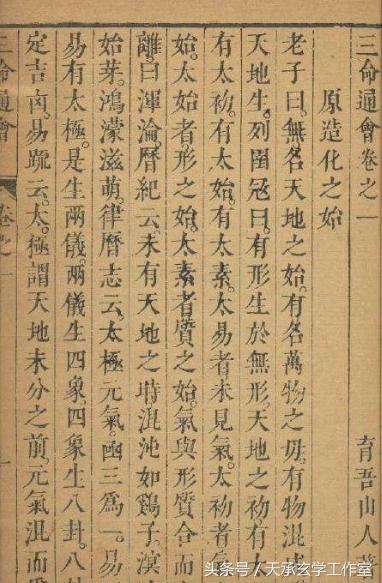 三命通會卷之一
育吾山人著
原造化之始
老子曰。無名天地之始。有名萬物之母。有物混成
天地生。列圄冦曰。有形生於無形。天地之初有太
有太初。有太始。有太素。太易者未見氣。太初者
始。太始者形之始。太素者質之始。氣與形質合而
離。曰渾淪。曆紀云。未有天地之時混沌如鷄子。溟
始芽。鴻濛滋萌。律曆志云。太極元氣函三爲一。易
易有太極。是生兩儀。兩儀生四象。四象生八卦。八
定吉凶。易疏云。太極謂天地未分之前。元氣混而
三命通會
卷之一
頭条号／天承玄学工作室